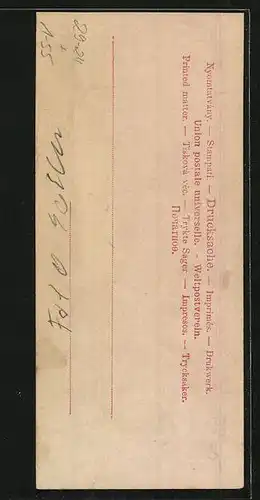 Nyomtatvány. — Stampati. — Drucksache. — Imprimés. — Drukwerk.
Union postale universelle. - Weltpostverein.
Printed matter. — Tisková věc. — Trykte Sager — Impresos. — Trycksaker.
Печатное.
29-24
1-55